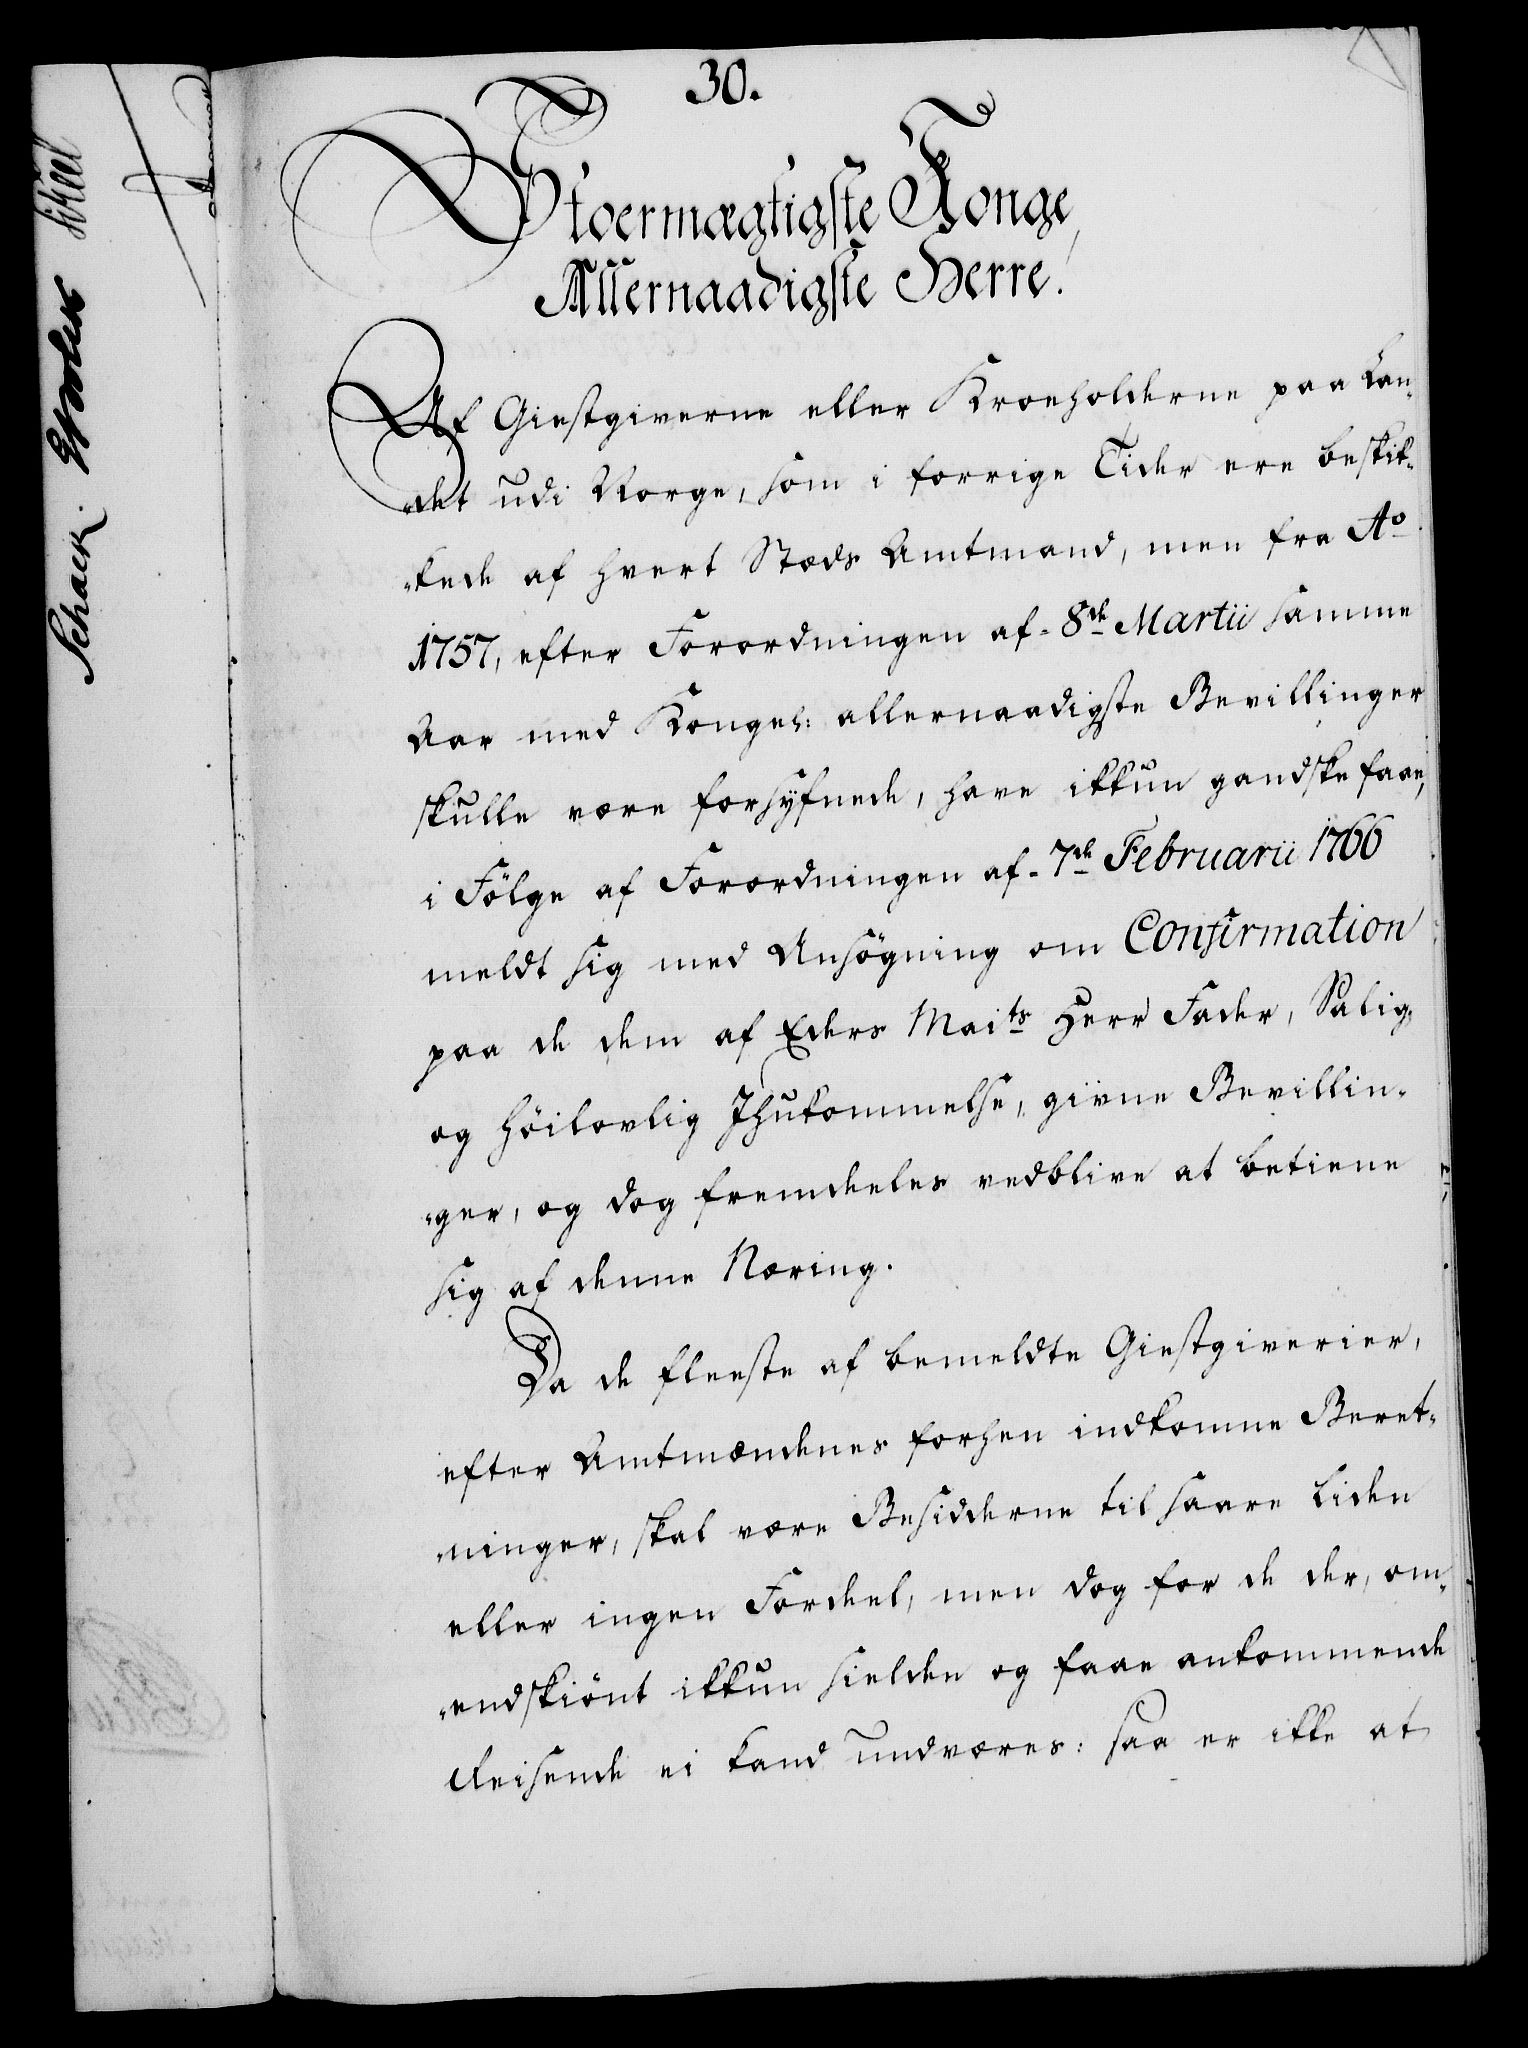 30.
Stoermægtigste Konge,
Allernaadigste Herre!
Af Giestgiverne eller Kroeholderne paa Lan-
-det udi Norge, som i forrige Tider ere beskik-
-kede af hvert Stæds Amtmand, men fra Ao
1757, efter Forordningen af 8de Martii samme
Aar med Kongel: allernaadigste Bevillinger
skulle være forsÿfnede, have ikkun gandske faae,
i Fölge af Forordningen af 7de Februarii 1766
meldt sig med Ansögning om Confirmation
paa de dem af Eders Maits Herr Fader, Salig-
og höilovlig Ihukommelse, givne Bevillin-
-ger, og dog fremdeeles vedblive at betiene
sig af denne Næring.
Da de fleeste af bemeldte Giestgiverier,
efter Amtmændenes forhen indkomne Beret-
-ninger, skal være Besidderne til saare liden
eller ingen Fordeel, men dog for de der, om-
-endskiönt ikkun sielden og faae ankommende
Reisende ei kand undværes: saa er ikke at
Schack